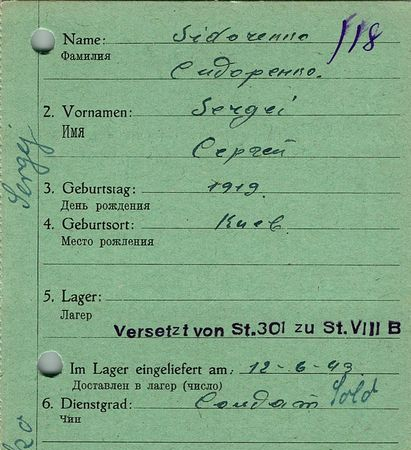 Name: Sidorenko 118
Фамилия
Сидоренко.
2. Vornamen: Sergei
Имя
Сергей
Sergej
3. Geburtstag: 1919.
День рождения
4. Geburtsort: Киев.
Место рождения
5. Lager:
Лагер
Versetzt von St.301 zu St.VIII B
Im Lager eingeliefert am: 12-6-43
Доставлен в лагер (число)
6. Dienstgrad: Солдат Sold
Чин